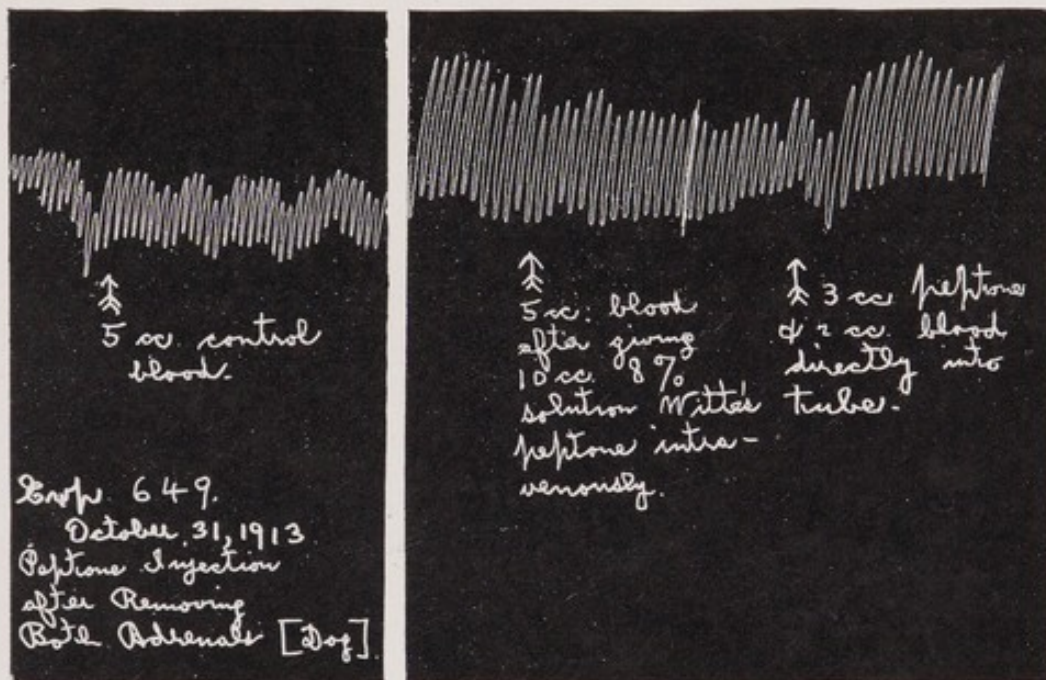 5 cc. control
blood.
Exp 649.
October 31, 1913
Peptone Injection
after Removing
Both Adrenals [Dog]
5 cc. blood
after giving
10 cc. 8%
solution Witte's
peptone intra-
venously.
3 cc. peptone
& 2 cc. blood
directly into
tube.